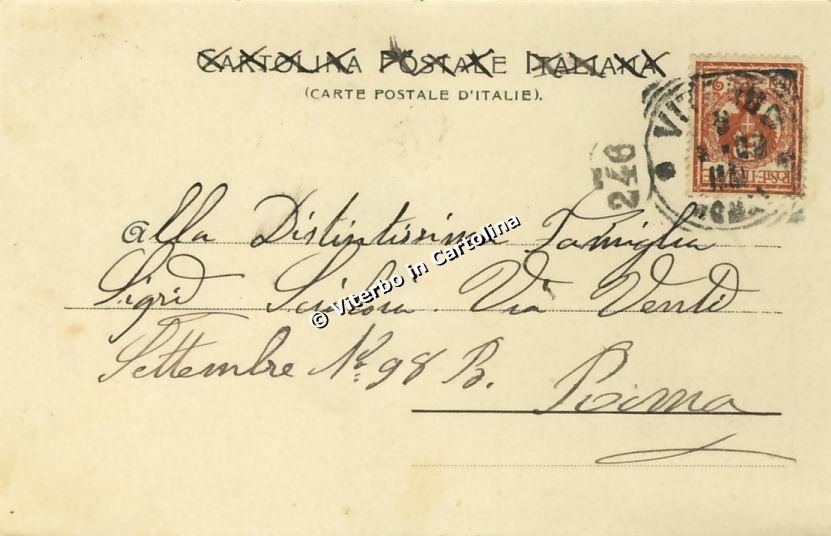 CARTOLINA POSTALE ITALIANA
(CARTE POSTALE D'ITALIE).
VITERBO
ROMA
246
Alla Distintissima Famiglia
Sigri Via Venti
Settembre No. 98 B. Roma
© Viterbo in Cartolina